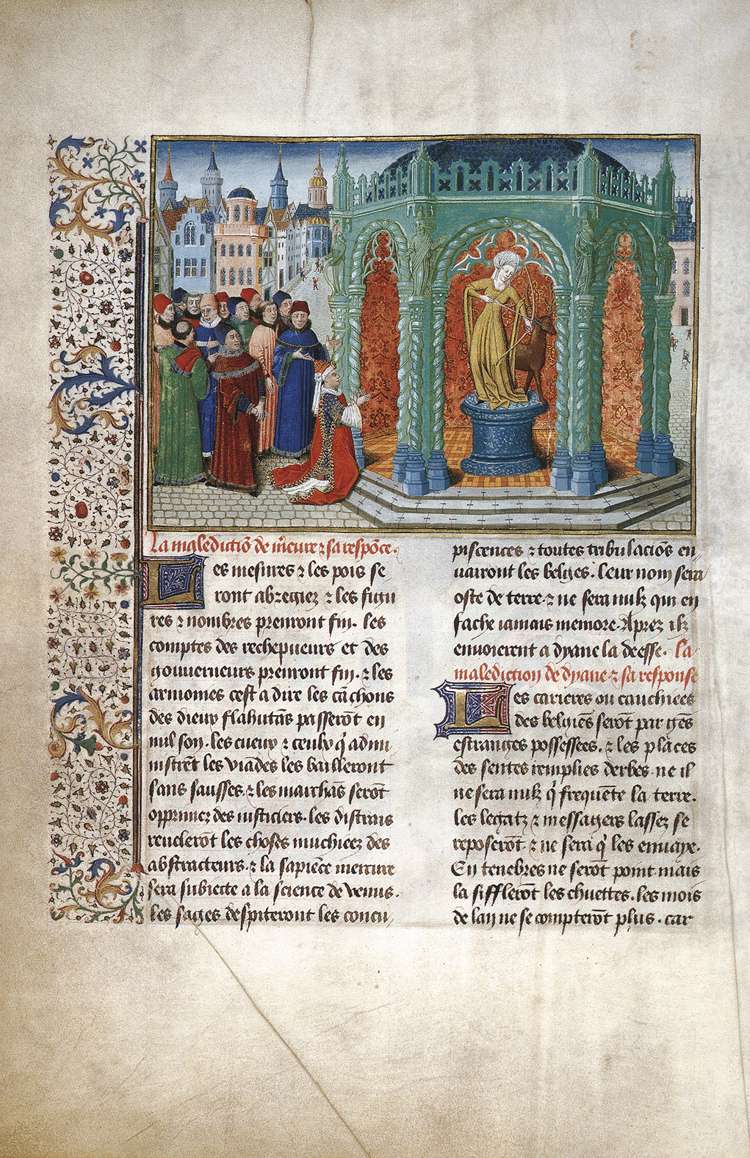 La maledictiõ de m̃cure ⁊ sa respõce.
Les mesures ⁊ les pois se
ront abregiez ⁊ les figu
res ⁊ nombres prenront fin. les
comptes des rechepueurs et des
gouuerneurs prenront fin. ⁊ les
armonies cest a dire les cãchons
des dieux flahutãs passerõt en
nul son. les cueux ⁊ ceulx q̃ admi
nistrẽt les viãdes les bailleront
sans sausses ⁊ les marchãs serõt
opprimez des iusticiers. les
rencleront les choses muchiees des
abstracteurs. ⁊ la sapiẽce mercure
sera subiecte a la science de venus.
les sages despiteront les concu
piscences ⁊ toutes tribulaciõs en
uairont les belges. leur nom sera
oste de terre. ⁊ ne sera nulz qui en
face iamais memoire. Aprez ilz
enuoierent a dyane la deesse. La
malediction de dyane ⁊ sa response
Les carieres ou cauchiees
des belgiẽs serõt par gẽs
estranges possessees. ⁊ les places
des sentes remplies derbes. ne il
ne sera nulz q̃ frequẽte la terre.
les legatz ⁊ messagers lassez se
reposerõt ⁊ ne sera q̃ les enuoye.
En tenebres ne serõt point mais
la siffleront les chuettes. les mois
de lan ne se compterõt plus. car